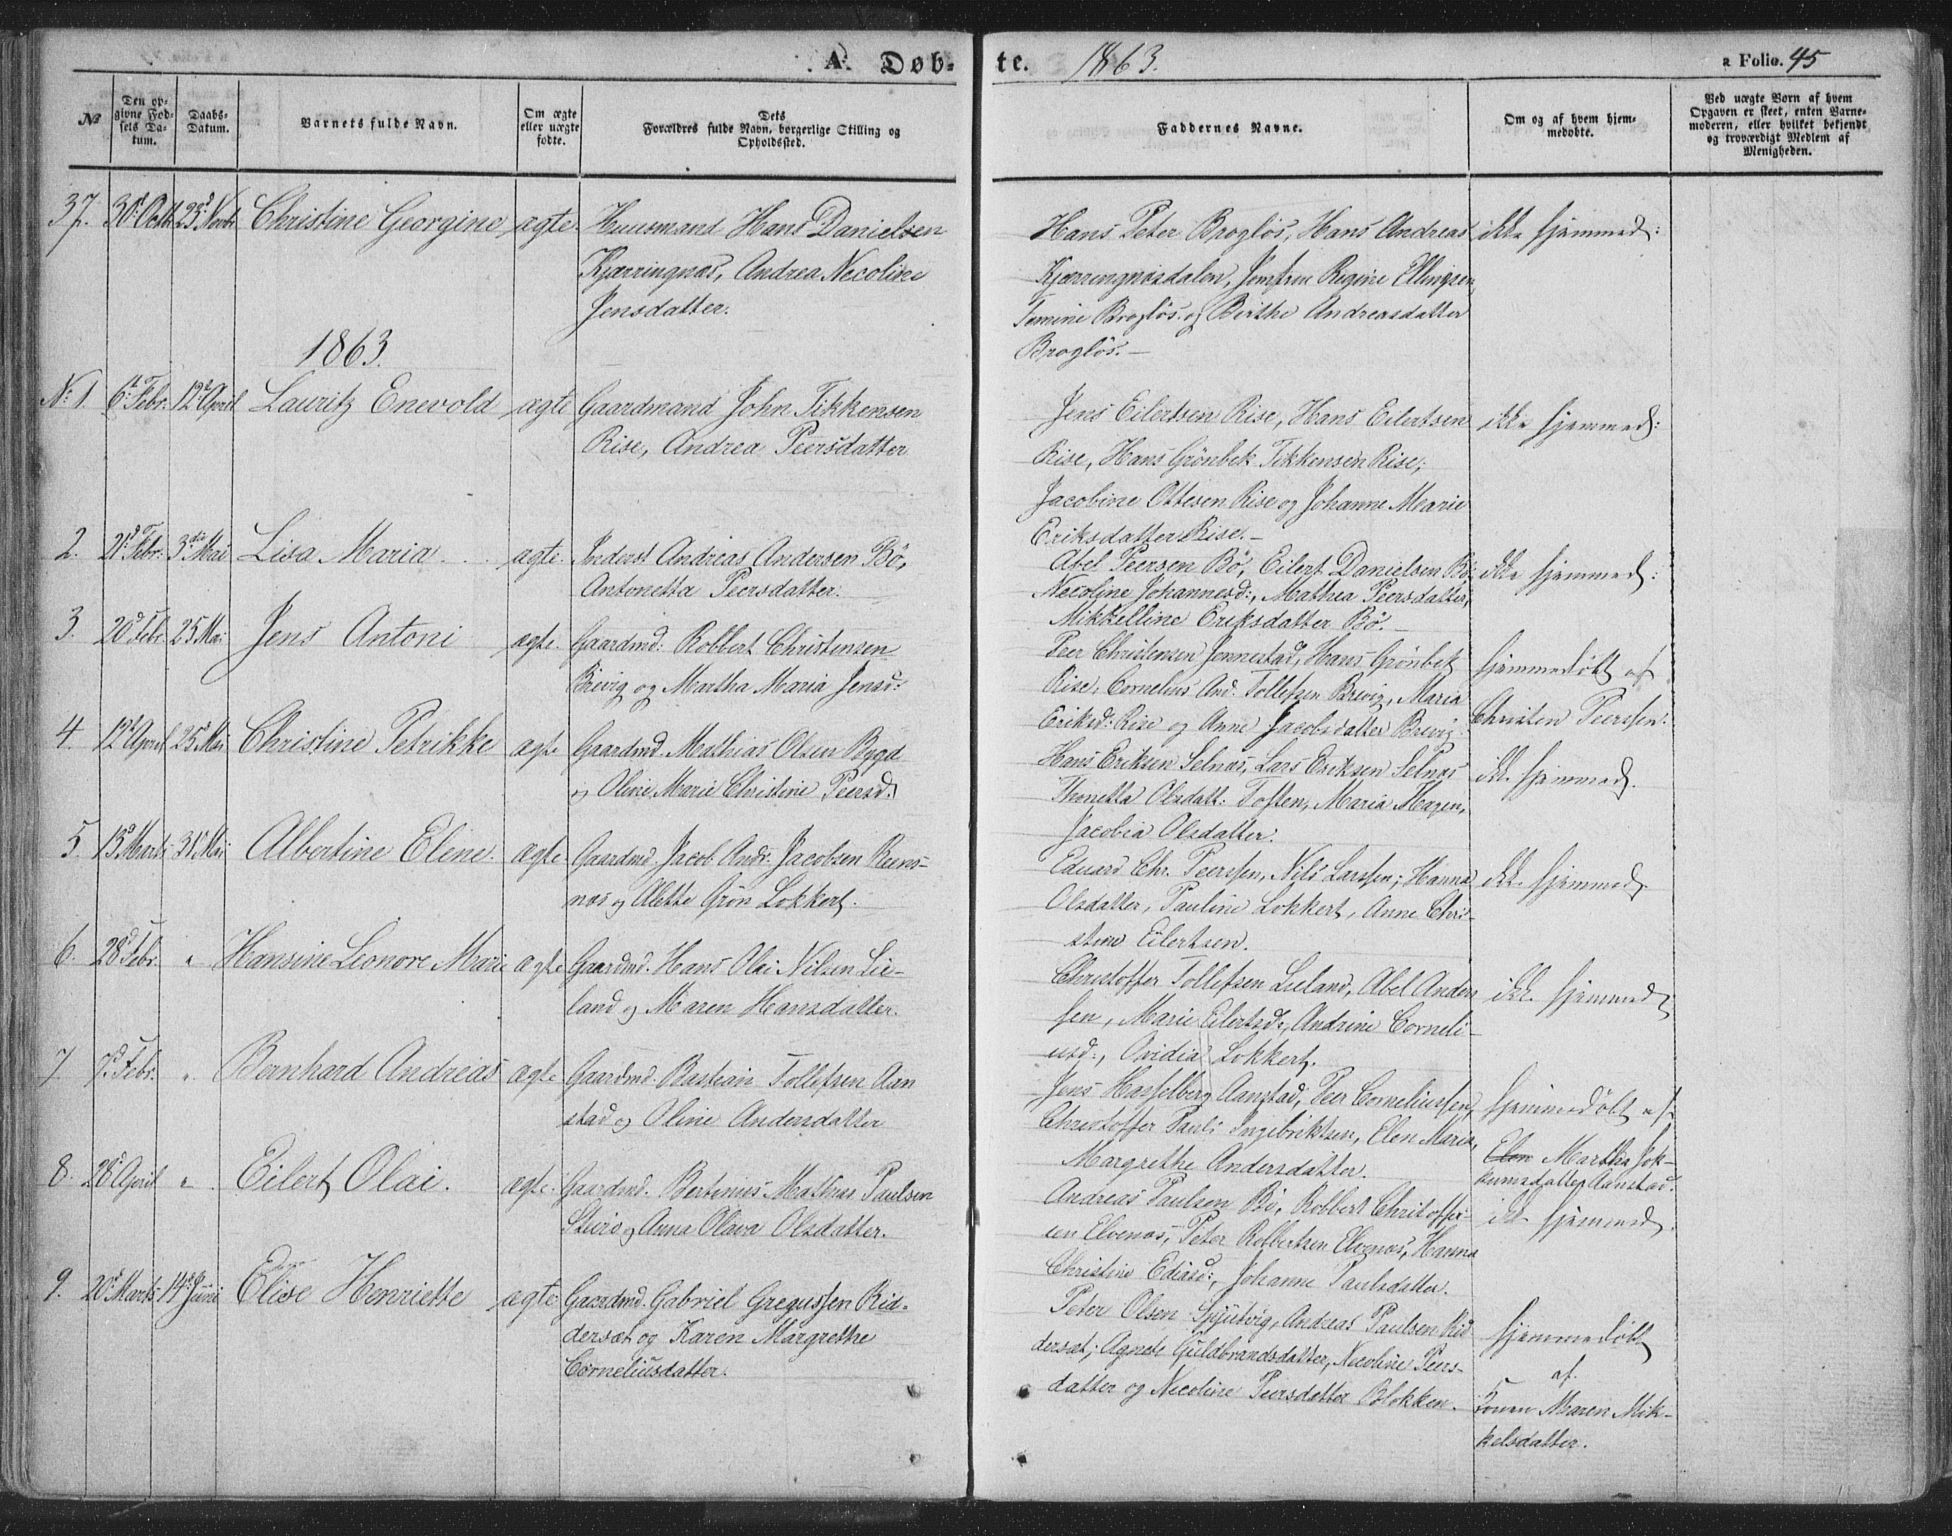 A. Døb-
te. 1863.
a Folio. 45
No
Den op-
givne Fød-
sels Da-
tum.
Daabs-
Datum.
Barnets fulde Navn.
Om ægte
eller uægte
fødte.
Dets
Forældres fulde Navn, borgerlige Stilling og
Opholdssted.
Faddernes Navne.
Om og af hvem hjem-
medøbte.
Ved uægte Børn af hvem
Opgaven er skeet, enten Barne-
moderen, eller hvilket bekjendt
og troværdigt Medlem af
Menigheden.
37. 30d Octb 23d Novbr Christine Georgine ægte. Huusmand Hans Danielsen
Kjærringnæs, Andrea Necoline
Jensdatter.
Hans Peter Brogløs, Hans Andreas
Kjærringnæsdalen, Jomfru Regine Ellingsen,
Tomine Brogløs og Birthe Andreasdatter
Brogløs.—
ikke hjemmed:
1863.
No 1. 6te Febr. 12d April Lauritz Enevold ægte Gaardmand John Tikkensen
Rise, Andrea Peersdatter
Jens Eilertsen Rise, Hans Eilertsen
Rise, Hans Grönbek Tikkensen Rise;
Jacobine Ottesen Rise og Johanne Marie
Eriksdatter Rise.—
ikke hjemmed:
2. 21d Febr. 3die Mai Lisa Maria ægte. Inderst Andreas Andersen Bö,
Antonetta Peersdatter.
Abel Peersen Bö, Eilert Danielsen Bö
Necoline Johannesd:, Mathea Peersdatter,
Mikkelline Eriksdatter Bö.—
ikke hjemmed:
3. 20d Febr. 25 Mai Jens Antoni ægte. Gaardmd: Robbert Christensen
Brevig og Martha Maria Jensd:
Peer Christensen Jennestad, Hans Grönbek
Rise, Cornelius And. Tollefsen Brevig, Maria
Eriksd: Rise og Anne Jacobsdatter Brevig.
hjemmedøbt af
Christen Peerssen.
4. 12d April 25d Mai Christine Petrikke ægte Gaardmd. Mathias Olsen Bygd
og Oline Marie Christine Peersd.
Hans Eriksen Selnæs, Lars Eriksen Selnæs
Thonetta Olsdatt: Toften, Maria Hagen,
Jacobia Olsdatter.
ikke hjemmed.
5. 13d Marts 31d Mai Albertine Elene. ægte Gaardmd. Jacob Andr. Jacobsen Reins-
næs og Alette Grön Lokkert.
Eduard Chr. Peerssen, Nils Larssen; Hanna
Olsdatter, Pauline Lokkert, Anne Chri-
stine Eilertsen.
ikke hjemmed.
6. 28d Febr. " Hansine Leonore Marie ægte Gaardmd. Hans Olai Nilsen Lie-
land og Maren Hansdatter.
Christoffer Tollefsen Lieland, Abel Anders
sen, Marie Eilertsd:, Andrine Corneli-
usd:, Ovidia Lokkert.
ikke hjemmed
7. 7d Febr. " Bernhard Andreas ægte Gaardmd. Bastian Tollefsen Aan
stad og Oline Andersdatter
Jens Hasselberg Aanstad, Peer Corneliussen,
Christoffer Pauls Ingebriktsen, Elen Maria,
Margrethe Andersdatter.
hjemmedøbt af
Elen Martha Jok-
kumsdatter Aanstad.
8. 28d April " Eilert Olai. ægte. Gaardmd. Bertinius Mathias Paulsen
Steiro og Anna Olava Olsdatter.
Andreas Paulsen Bö, Robbert Christoffer-
sen Elvenæs, Peter Robbertsen Elvenæs, Hanna
Christine Ediasd:, Johanne Paulsdatter.
ikke hjemmed.
9. 20d Marts 14d Juni Elise Henriette ægte Gaardmd. Gabriel Gregussen Rid-
dersæt og Karen Margrethe
Corneliusdatter.
Peter Olsen Spjutvig, Andreas Paulsen Rid
dersæt, Agnete Guldbrandsdatter, Necoline Peers-
datter og Necoline Peersdatter Blokken.
hjemmedøbt
af.
Konen Maren Mik-
kelsdatter.